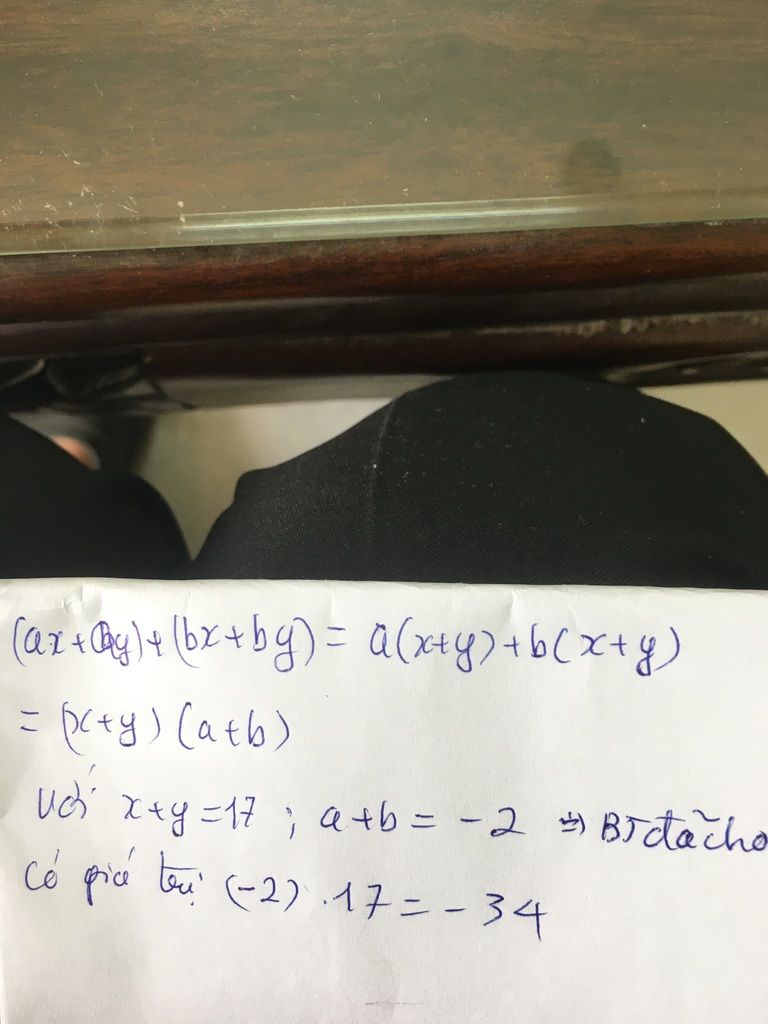 (ax+ay)+(bx+by) = a(x+y)+b(x+y)
= (x+y)(a+b)
Với x+y=17 ; a+b = -2 => BT đã cho
có giá trị (-2).17 = -34